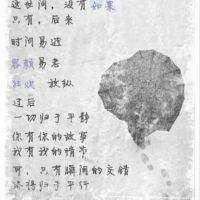 这世间，没有如果
只有，后来
时间易逝
容颜易老
狂欢 放纵
过后
一切归于平静
你有你的故事
我有我的情节
可，只有瞬间的交错
终得归于平行